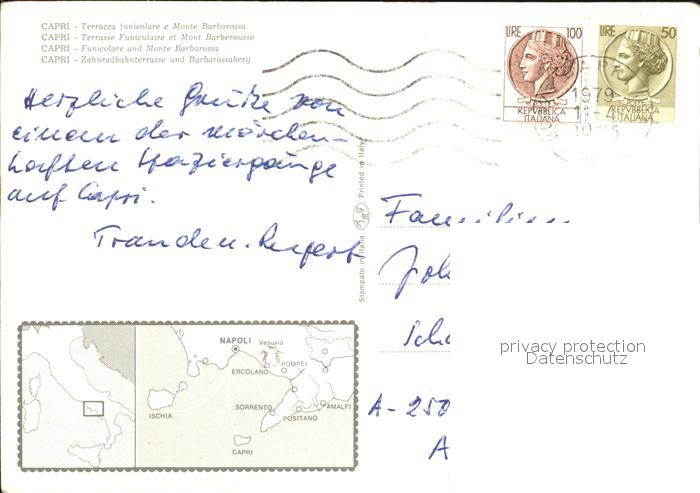 CAPRI - Terrazza funicolare e Monte Barbarossa
CAPRI - Terrasse Funiculaire et Mont Barberousse
CAPRI - Funicolare and Monte Barbarossa
CAPRI - Zahnradbahnterrasse und Barbarossaberg
LIRE 100
REPVBBLICA
ITALIANA
LIRE 50
REPVBBLICA
ITALIANA
1979
Herzliche Grüße von
einem der märchen-
haften Spaziergänge
auf Capri.
Stampato in Italia
Printed in Italy
Familie
A-250
A
privacy protection
Datenschutz
NAPOLI
Vesuvio
ERCOLANO
POMPEI
ISCHIA
SORRENTO
AMALFI
POSITANO
CAPRI